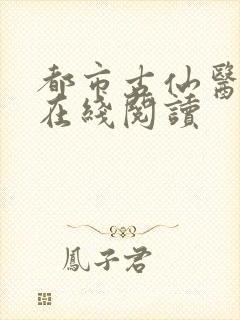 都市古仙醫
在綫閱讀
鳳子君